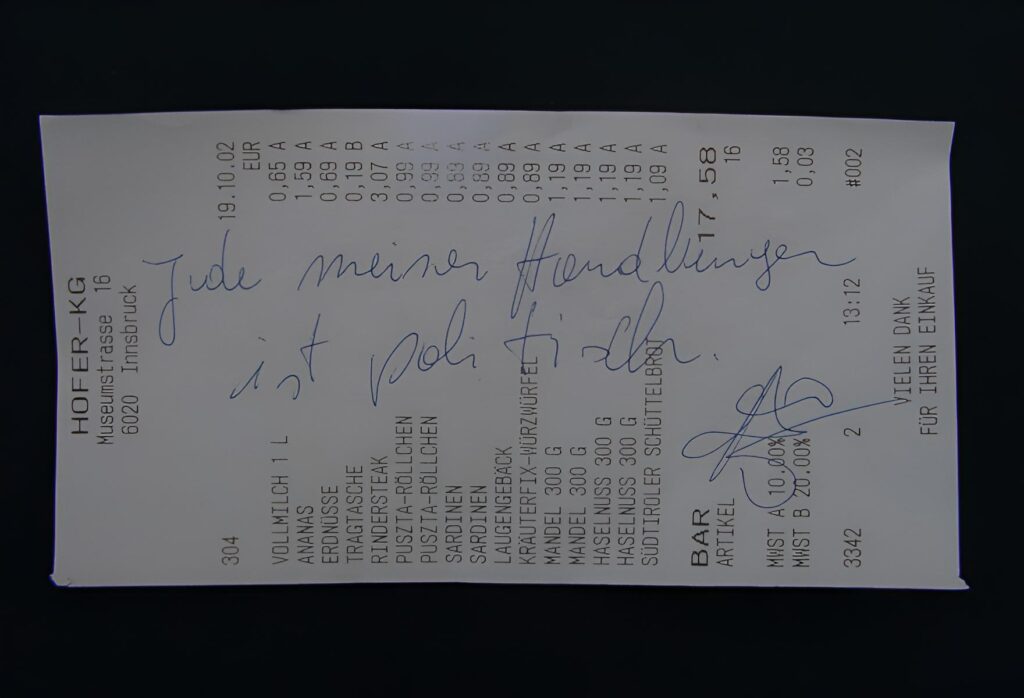 HOFER-KG
Museumstrasse 16
6020 Innsbruck
304 19.10.02
EUR
VOLLMILCH 1 L 0,65 A
ANANAS 1,59 A
ERDNÜSSE 0,69 A
TRAGTASCHE 0,19 B
RINDERSTEAK 3,07 A
PUSZTA-RÖLLCHEN 0,99 A
PUSZTA-RÖLLCHEN 0,99 A
SARDINEN 0,89 A
SARDINEN 0,89 A
LAUGENGEBÄCK 0,89 A
KRÄUTERFIX-WÜRZWÜRFEL 0,89 A
MANDEL 300 G 1,19 A
MANDEL 300 G 1,19 A
HASELNUSS 300 G 1,19 A
HASELNUSS 300 G 1,19 A
SÜDTIROLER SCHÜTTELBROT 1,09 A
BAR 17,58
ARTIKEL 16
MWST A 10.00% 1,58
MWST B 20.00% 0,03
3342 2 13:12 #002
VIELEN DANK
FÜR IHREN EINKAUF
Jede meiner Handlungen
ist politisch.